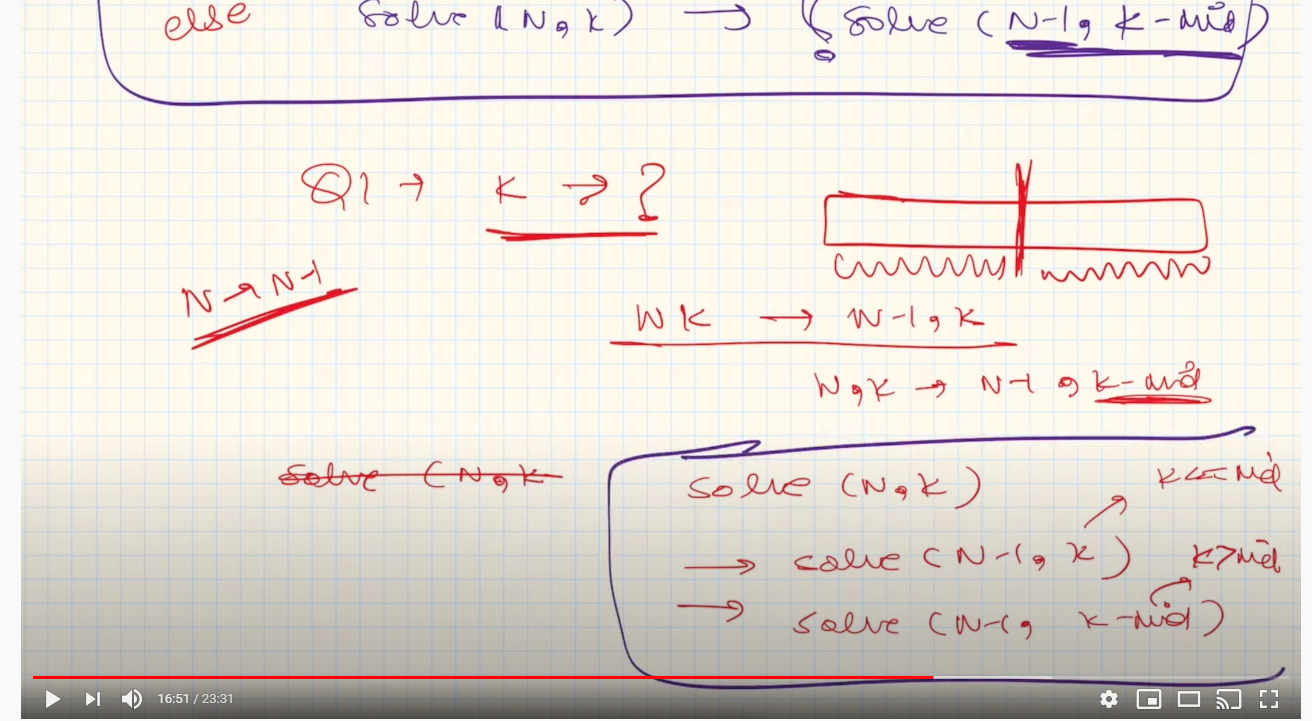 else solve (N, k) → ! solve (N-1, k-mid)
Q1 → k → ?
N → N-1
N k → N-1, k
N, k → N-1, k-mid
solve (N, k
solve (N, k)
k <= mid
→ solve (N-1, k)
k > mid
→ solve (N-1, k-mid)
16:51 / 23:31